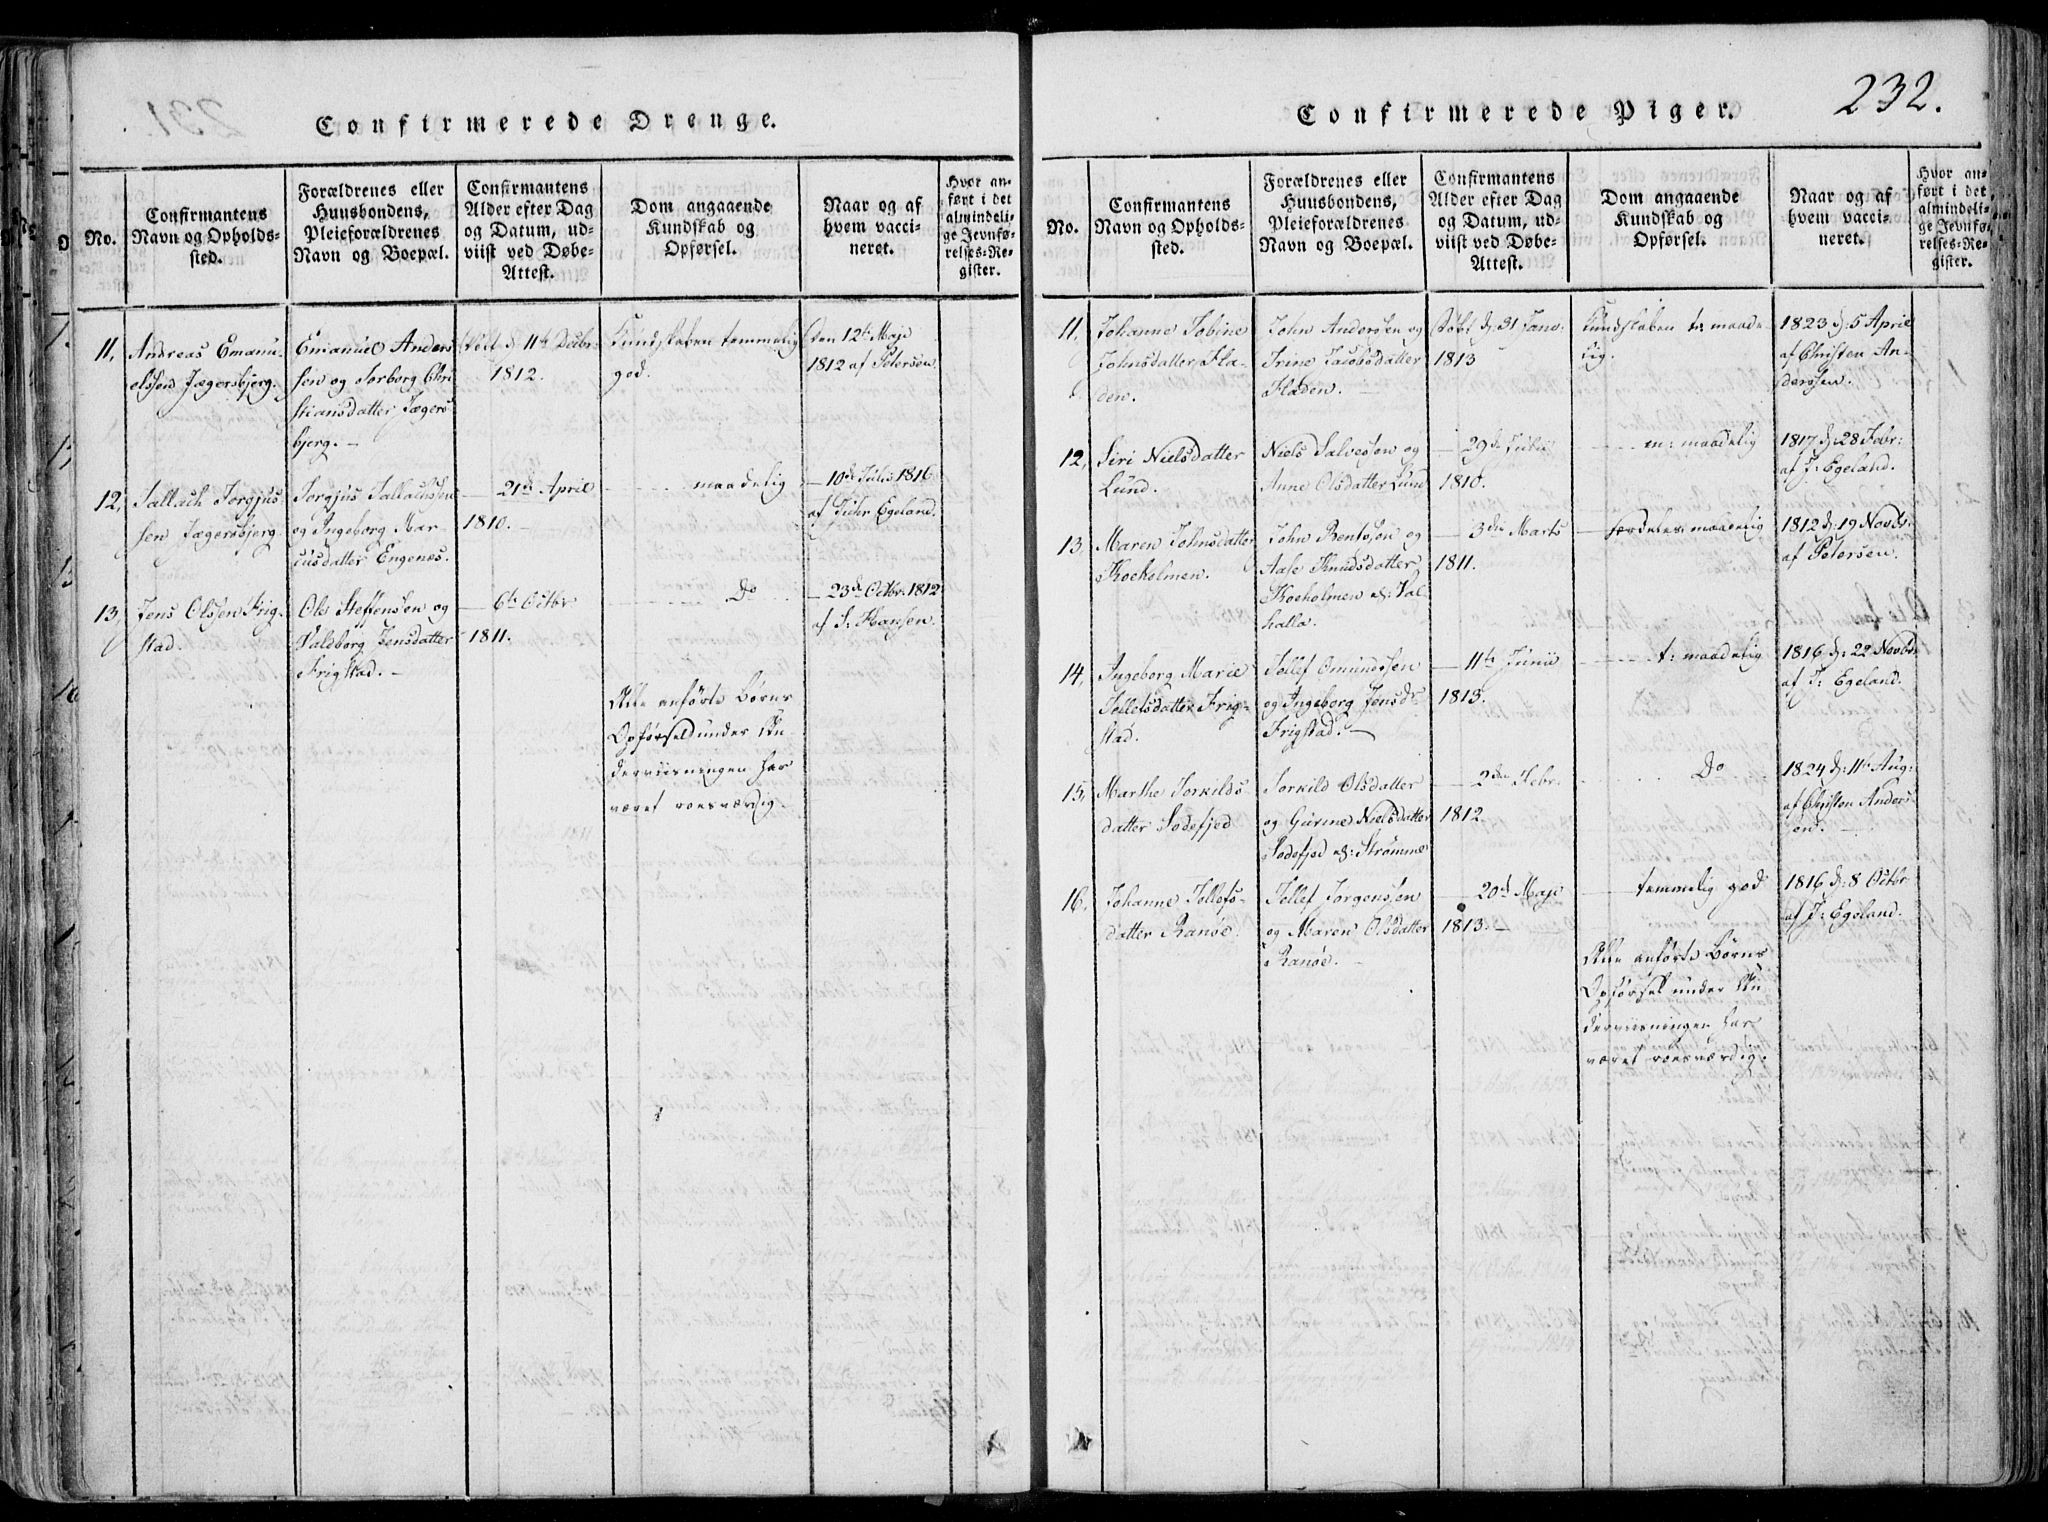 Confirmerede Drenge.
No.
Confirmantens
Navn og Opholds-
sted.
Forældrenes eller
Huusbondens,
Pleieforældrenes
Navn og Boepæl.
Confirmantens
Alder efter Dag
og Datum, ud-
viist ved Døbe-
Attest.
Dom angaaende
Kundskab og
Opførsel.
Naar og af
hvem vacci-
neret.
Hvor an-
ført i det
almindeli-
ge Jevnfø-
relses-Re-
gister.
11,
Andreas Emanu-
elssen Jægersbjerg.
Emanuel Anders
sen og Torborg Chri
stiansdatter Jægers
bjerg. —
Født d. 11te Decbr
1812.
Kundskaben temmelig
god.
den 12te Maji
1812 af Petersen
12,
Tallach Torgjus
sen Jægersbjerg
Torgjus Tallachsen
og Ingeborg Mar-
cusdatter Engenes.
— 21de April
1810.
maadelig
— 10de Julii 1816
af Egeland.
13,
Jens Olssen Frig-
stad.
Ole Steffenssen og
Valdborg Jensdatter
Frigstad. —
— 6te Octbr
1811.
Do
— 23de Octbr. 1812
af S: Hanssen.
Alle anførte Børns
Opførsel under Un
derviisningen har
været roesværdig.
Confirmerede Piger.
232.
No.
Confirmantens
Navn og Opholds-
sted.
Forældrenes eller
Huusbondens,
Pleieforældrenes
Navn og Boepæl.
Confirmantens
Alder efter Dag
og Datum, ud-
viist ved Døbe-
Attest.
Dom angaaende
Kundskab og
Opførsel.
Naar og af
hvem vacci-
neret.
Hvor an-
ført i det
almindeli-
ge Jevnfø-
relses-Re-
gister.
11.
Johanne Tobine
Johnsdatter Fla-
den.
John Anderssen og
Trine Jacobsdatter
Fladen. —
Født d. 31 Janv
1813
Kundskaben t: maade-
lig.
1823 d: 5 April
af Christen An-
derssen.
12,
Siri Nielsdatter
Lund.
Niels Salvessen og
Anne Olsdatter Lund
— 29de Julii
1810.
m: maadelig
1817 d: 28 Febr:
af J: Egeland.
13.
Maren Johnsdatter
Koeholmen.
John Bentssen og
Aase Knudsdatter
Koeholmen v: Val
halla.
— 3die Marts
1811.
maadelig
1812 d: 19 Novbr.
af Petersen.
14,
Ingeborg Marie
Tellefsdatter Frig-
stad.
Tellef Omundssen
og Ingeborg Jensdr
Frigstad. —
— 11te Junii
1813.
t: maadelig
1816 d: 22 Novbr
af J: Egeland.
15,
Marthe Torkilds
datter Sodefjed
Torkild Olsdatter
og Gurine Nielsdatter
Sodefjed v: Strømme
— 2den Febr.
1812
Do
1824 d: 11te Aug:
af Christen Anders
sen. —
16.
Johanne Tellefs-
datter Ranøe.
Tellef Jørgenssen
og Maren Olsdatter
Ranøe. —
— 20de Maji
1813. —
temmelig god
1816 d: 8 Octbr
af J: Egeland.
Alle anførte Børns
Opførsel under Un
derviisningen har
været roesværdig.